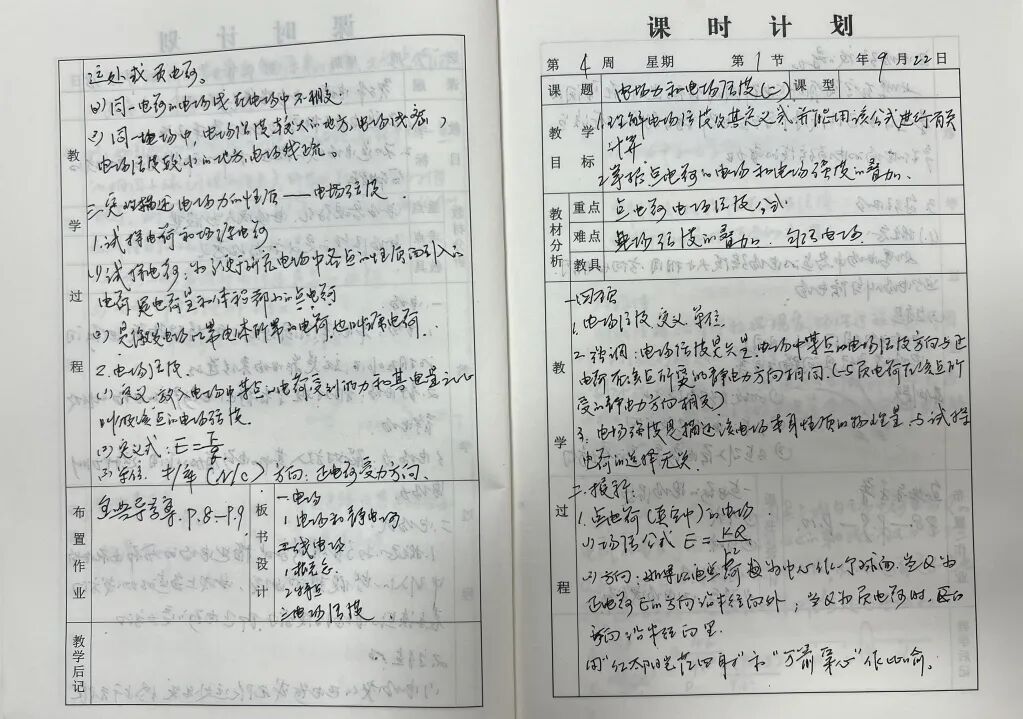 远处或负电荷。
(2)同一电荷的电场线在电场中不相交
(3)同一电场中,电场强度较大的地方,电场线密,
电场强度较小的地方,电场线疏。
三、定性描述电场力的性质——电场强度
1.试探电荷和场源电荷
(1)试探电荷:为了研究电场中各点的性质而引入的
电荷,是电荷量和体积都小的点电荷
(2)是激发电场的带电体所带的电荷,也叫源电荷.
2.电场强度
(1)定义:放入电场中某点的电荷受到的力和其电量之比
叫做该点的电场强度
(2)定义式:E=F/q
(3)单位:牛/库(N/C) 方向:正电荷受力方向.
教学过程
布置作业
P.8—P.9
板书设计
一电场
1.电场和静电场
二线电场
1.概念
2.特点
三电场强度
教学后记
课时计划
第 4 周 星期 第 1 节 年 9 月 22 日
课题 电场力和电场强度(二) 课型
教学目标
1.理解电场强度及其定义式,并能用该公式进行有关
计算
2.掌握点电荷的电场和电场强度的叠加.
教材分析
重点 点电荷电场强度公式
难点 电场强度的叠加.匀强电场.
教具
教学过程
一.回顾
1.电场强度定义单位
2.强调:电场强度是矢量,电场中某点的电场强度方向与正
电荷在该点所受的静电力方向相同.(与负电荷在该点所
受的静电力方向相反)
3.电场强度是描述该电场本身性质的物理量,与试探
电荷的选择无关.
二.探新:
1.点电荷(真空中)的电场
(1)场强公式 E=KQ/r²
(2)方向:如果以电荷为中心作一个球面,当Q为
正电荷E的方向沿半径向外;当Q为负电荷时,E的
方向沿半径向里.
用“红太阳光芒四射”和“万箭穿心”作比喻.